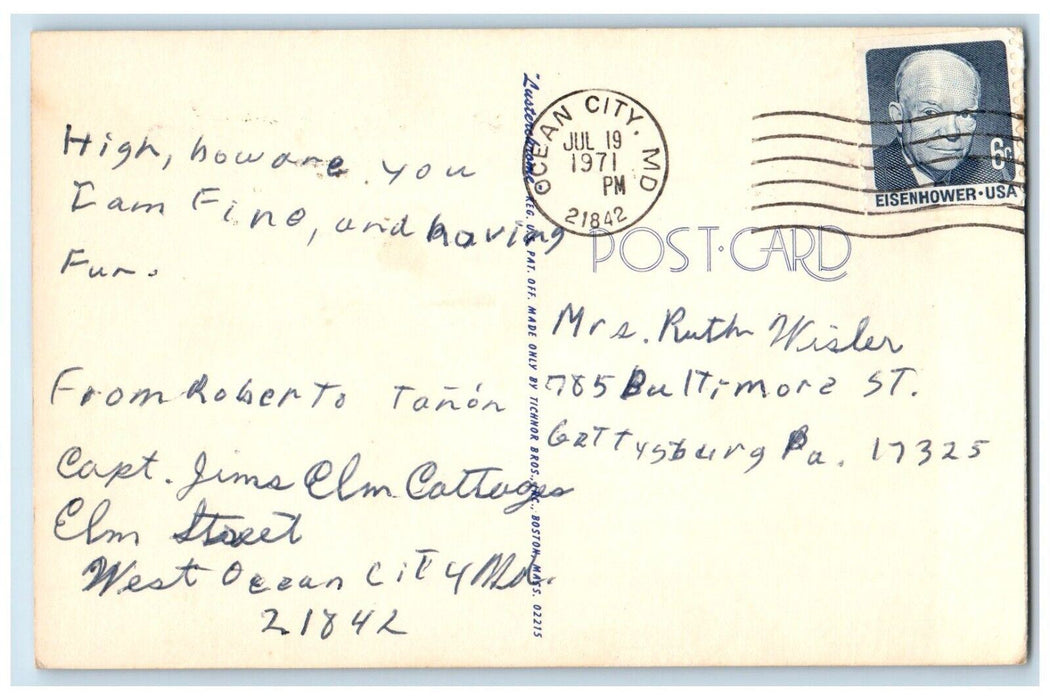 High, how are you
I am Fine, and having
Fun.
From Roberto Tañón
Capt. Jims Elm Cottages
Elm Street
West Ocean City Md.
21842
"Lusterchrome" REG. U.S. PAT. OFF. MADE ONLY BY TICHNOR BROS., INC., BOSTON, MASS. 02215
OCEAN CITY, MD
JUL 19
1971
PM
21842
6c
EISENHOWER·USA
POST·CARD
Mrs. Ruth Wisler
785 Baltimore ST.
Gettysburg Pa. 17325